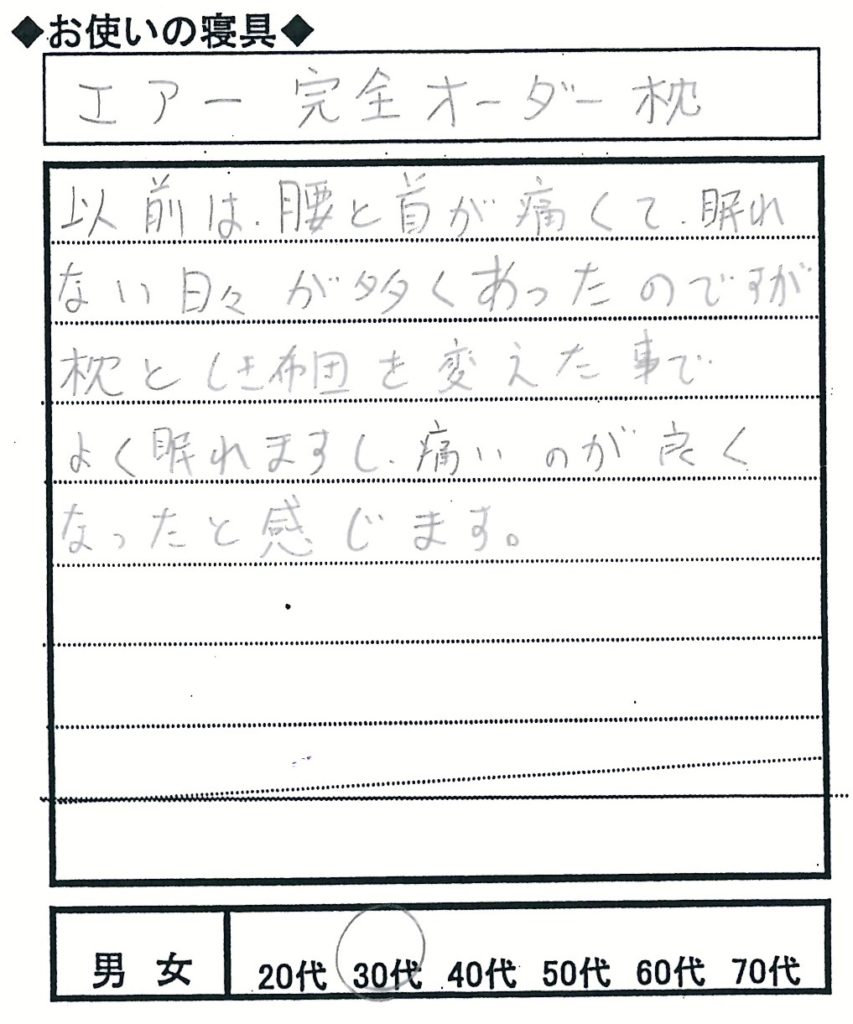 ◆お使いの寝具◆
エアー 完全オーダー枕
以前は、腰と首が痛くて、眠れ
ない日々が多くあったのですが
枕としき布団を変えた事で
よく眠れますし、痛いのが良く
なったと感じます。
男 女 20代 30代 40代 50代 60代 70代